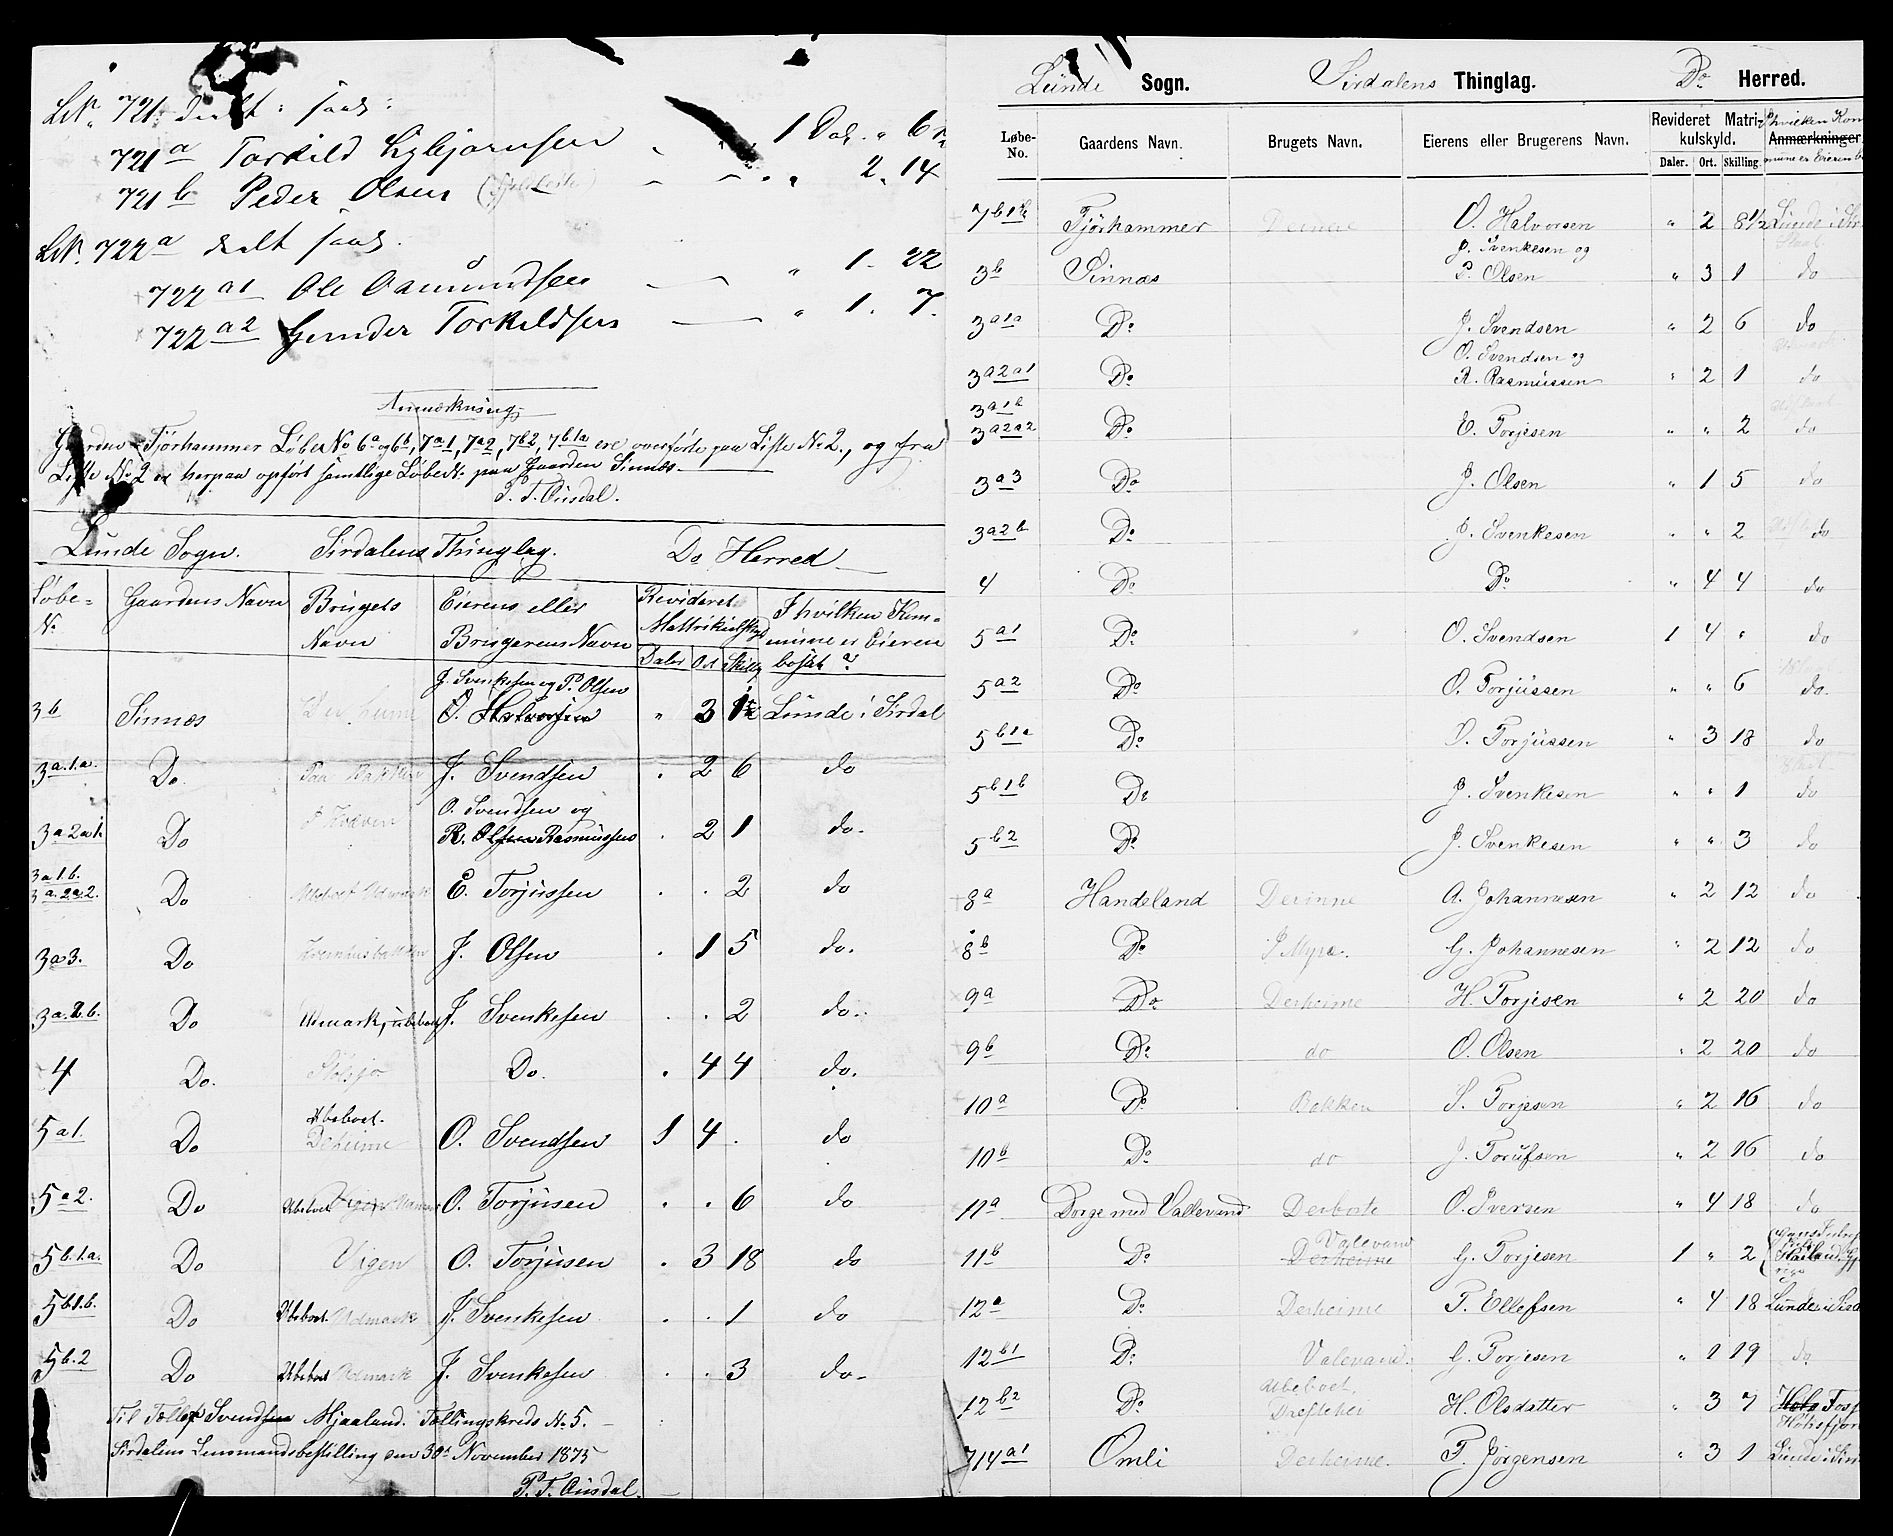 LN. 721. deelt: saal:
721a Torkild Eybjørnsen 1 Dal. " 6
721b Peder Olsen " 2. 14
LN. 722a deelt saal.
722a1 Ole Aamundsen " 1. 22
722a2 Gunder Torkildsen " 1. 7.
Anmærkning.
Gaarden Fjørhammer LøbeNo 6a og 6b, 7a1, 7a2, 7b2, 7b1a ere overførte paa Liste No 2., og fra
Liste No 2 er herpaa opført samtlige LøbeN. paa Gaarden Sinnæs.
P. T. Ousdal.
Lunde Sogn. Sirdalens Thinglag. Do Herred
Løbe-No. Gaardens Navn Brugets Navn Eierens eller Brugerens Navn Revideret Matrikulskyld I hvilken Kommune er Eieren bosat?
Daler Ort Skilling
J. Svenkesen og P. Olsen
3b Sinnæs O. Halvorsen " 3 1 Lunde i Sirdal
3a.1.a. Do Paa Bakken J. Svendsen . 2 6 do
O. Svendsen og
3a2a1. Do R. Olsen Rasmussen . 2 1 do.
3a1b.
3a.2a.2. Do Udmark E. Torjussen . . 2 do
3a3. Do J. Olsen . 1 5 do.
3a.2.b. Do Udmark, ubeboet J. Svenkesen . . 2 do.
4 Do. Do. . 4 4 do.
Ubeboet.
5a1. Do Deheime O. Svendsen 1 4 . do
5a2. Do Ubeboet O. Torjusen . . 6 do
5b.1.a. Do Vigen O. Torjusen . 3 18 do
5b.1.b. Do Ubeboet Udmark J. Svenkesen . . 1 do
5b.2 Do Ubeboet Udmark J. Svenkesen . . 3 do.
Til Tellef Svendsen Mjaaland. Tællingskreds No 5.
Sirdalens Lensmandsbestilling den 30te November 1875
P. T. Ousdal.
Lunde Sogn. Sirdalens Thinglag. Do Herred.
Løbe-No. Gaardens Navn. Brugets Navn. Eierens eller Brugerens Navn. Revideret Matrikulskyld. Anmærkninger.
I hvilken Kommune er Eieren
Daler. Ort. Skilling.
7b1b Fjörhammer O. Halvorsen " 2 8½ Lunde i Sir
J. Svenkesen og
3b Sinnæs P. Olsen " 3 1 do
3a1a Do J. Svendsen " 2 6 do
O. Svendsen og
3a2a1 Do R. Rasmussen " 2 1 do
3a1b
3a2a2 Do E. Torjesen " " 2 do
3a3 Do J. Olsen " 1 5 do
3a2b Do J. Svenkesen " " 2 do
4 Do Do " 4 4 do
5a1 Do O. Svendsen 1 4 " do
5a2 Do O. Torjussen " " 6 do.
5b1a Do O. Torjussen " 3 18 do
5b1b Do J. Svenkesen " " 1 do
5b2 Do J. Svenkesen " " 3 do
8a Handeland Derinne A. Johannesen " 2 12 do
8b Do I Myra. G. Johannesen " 2 12 do
9a Do Derheime H. Torjesen " 2 20 do
9b Do do O. Olsen " 2 20 do
10a Do Bakken S. Torjesen " 2 16 do
10b Do do J. Torufsen " 2 16 do
11a Dorge med Vallevand Derborte O. Iversen " 4 18 do
Valevand
11b Do Derheime G. Torjesen 1 " 2
12a Do Derheime T. Ellefsen " 4 18 Lunde i Sird
12b1 Do Valevand. G. Torjesen " 1 19 do
Ubeboet,
12b2 Do H. Olsdatter " 3 7
714a1 Omli Derheime. T. Jörgensen " 3 1 Lunde i Sir